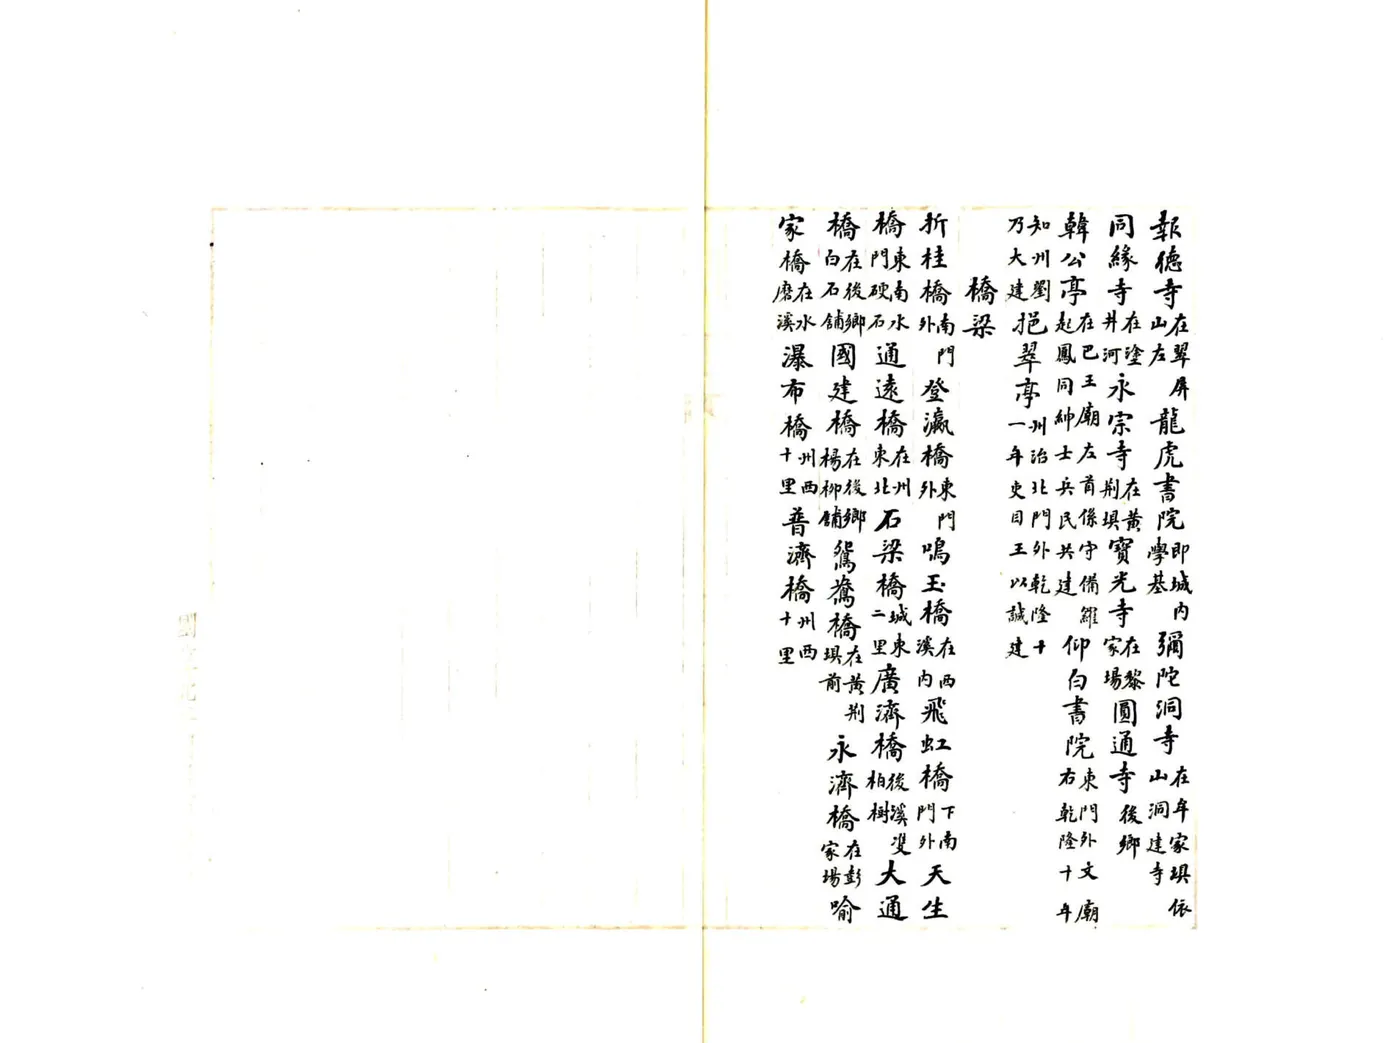 報德寺在翠屏山左龍虎書院即城內學基彌陀洞寺在牟家垻依山洞建寺
同緣寺在塗井河永宗寺在黃荆垻寶光寺在黎家場圓通寺後鄉
韓公亭在巴王廟左首係守備羅起鳳同紳士兵民共建仰白書院東門外文廟右乾隆十年
知州劉乃大建挹翠亭州治北門外乾隆十一年吏目王以誠建
橋梁
折桂橋南門外登瀛橋東門外鳴玉橋在西溪內飛虹橋下南門外天生
橋東南水門硬石通遠橋在州東北石梁橋城東二里廣濟橋後溪雙柏樹大通
橋在後鄉白石舖國建橋在後鄉楊柳舖鴛鴦橋在黃荆垻前永濟橋在彭家場喻
家橋在水磨溪瀑布橋州西十里普濟橋州西十里